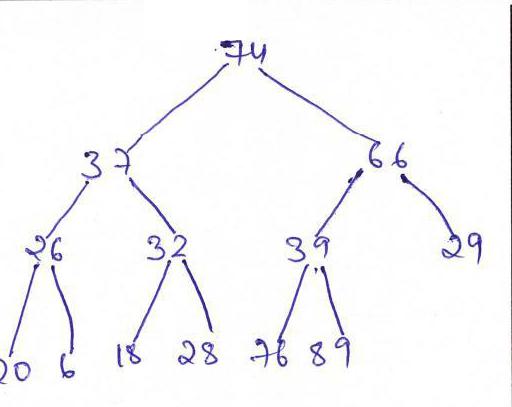 74
37 66
26 32 39 29
20 6 18 28 76 89